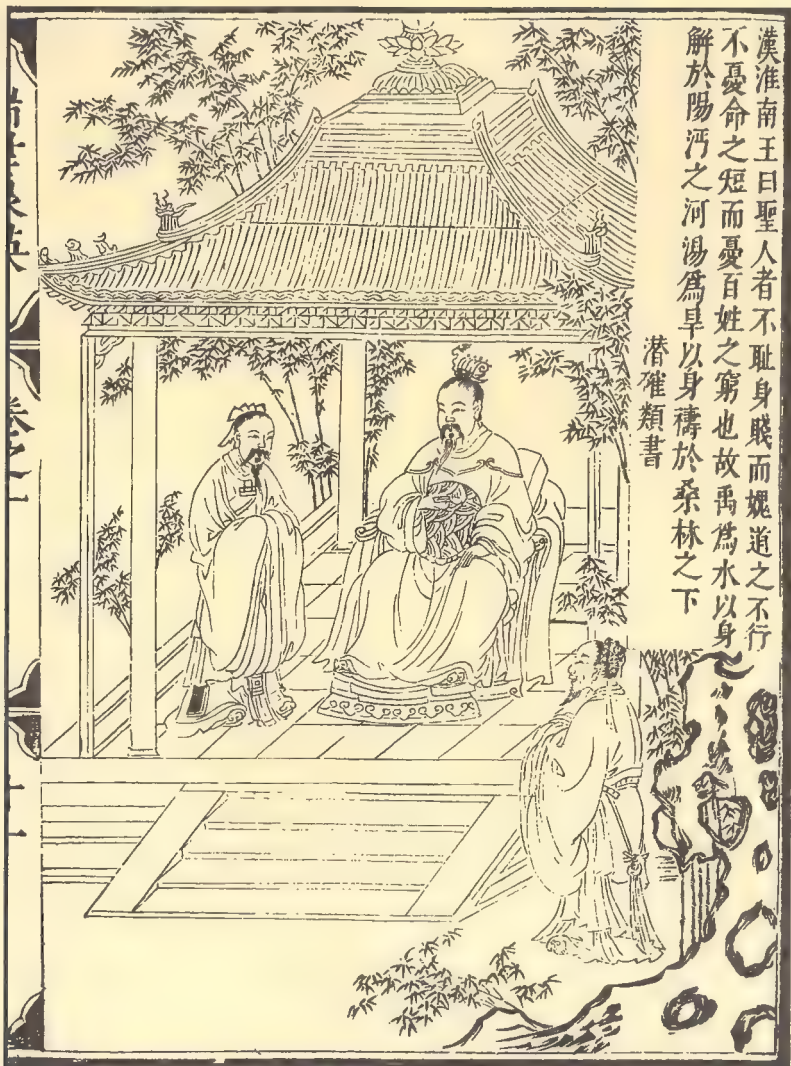 漢淮南王曰聖人者不耻身賤而媿道之不行
不憂命之短而憂百姓之窮也故禹爲水以身
解於陽沔之河湯爲旱以身禱於桒林之下
潜確類書
瑞世良英
卷之一